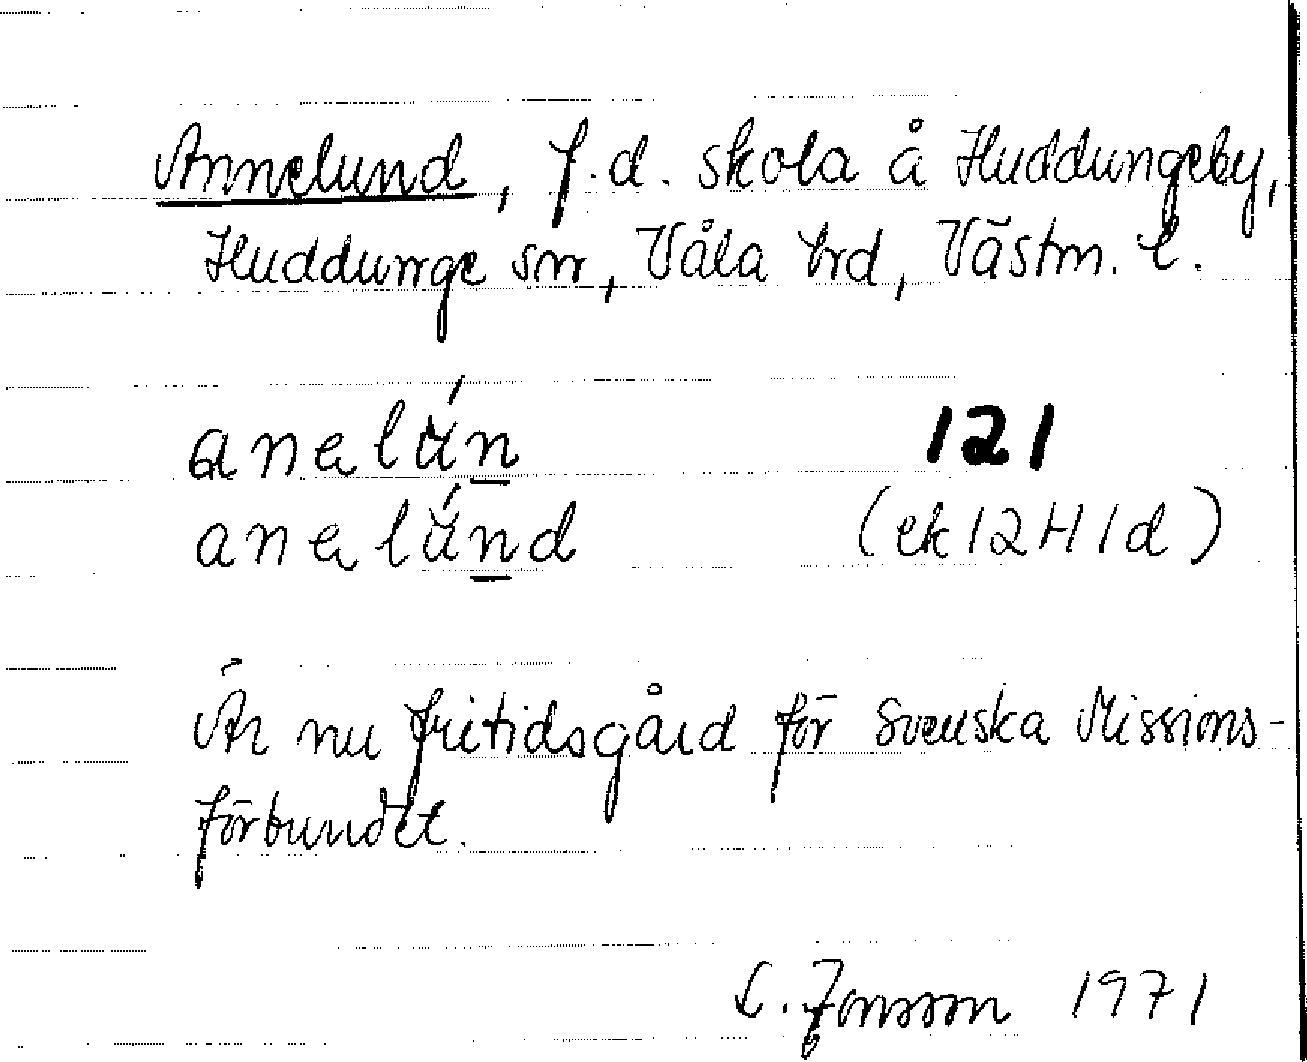 Annelund, f.d. skola å Huddungeby,
Huddunge sn, Våla hrd, Västm. l.
anelún 121
anelúnd (ek 12H1d)
Är nu fritidsgård för Svenska Missions-
förbundet.
L. Jonsson 1971